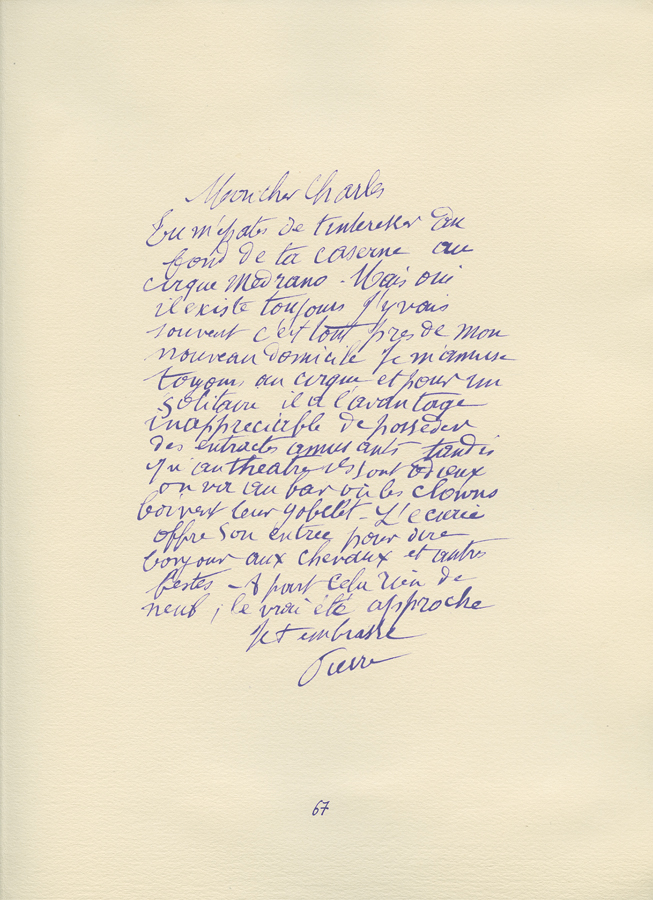 Mon cher Charles
Tu m'épates de t'interesser du
fond de ta caserne au
cirque Medrano - Mais oui
il existe toujours J'y vais
souvent c'est tout près de mon
nouveau domicile Je m'amuse
toujours au cirque et pour un
solitaire il a l'avantage
inappreciable de posséder
des entractes amusants tandis
qu'au theatre ils sont odieux
on va au bar où les clowns
boivent leur gobelet - L'ecurie
offre son entrée pour dire
bonjour aux chevaux et autres
bestes - A part cela rien de
neuf ; le vrai été approche
Je t'embrasse
Pierre
67